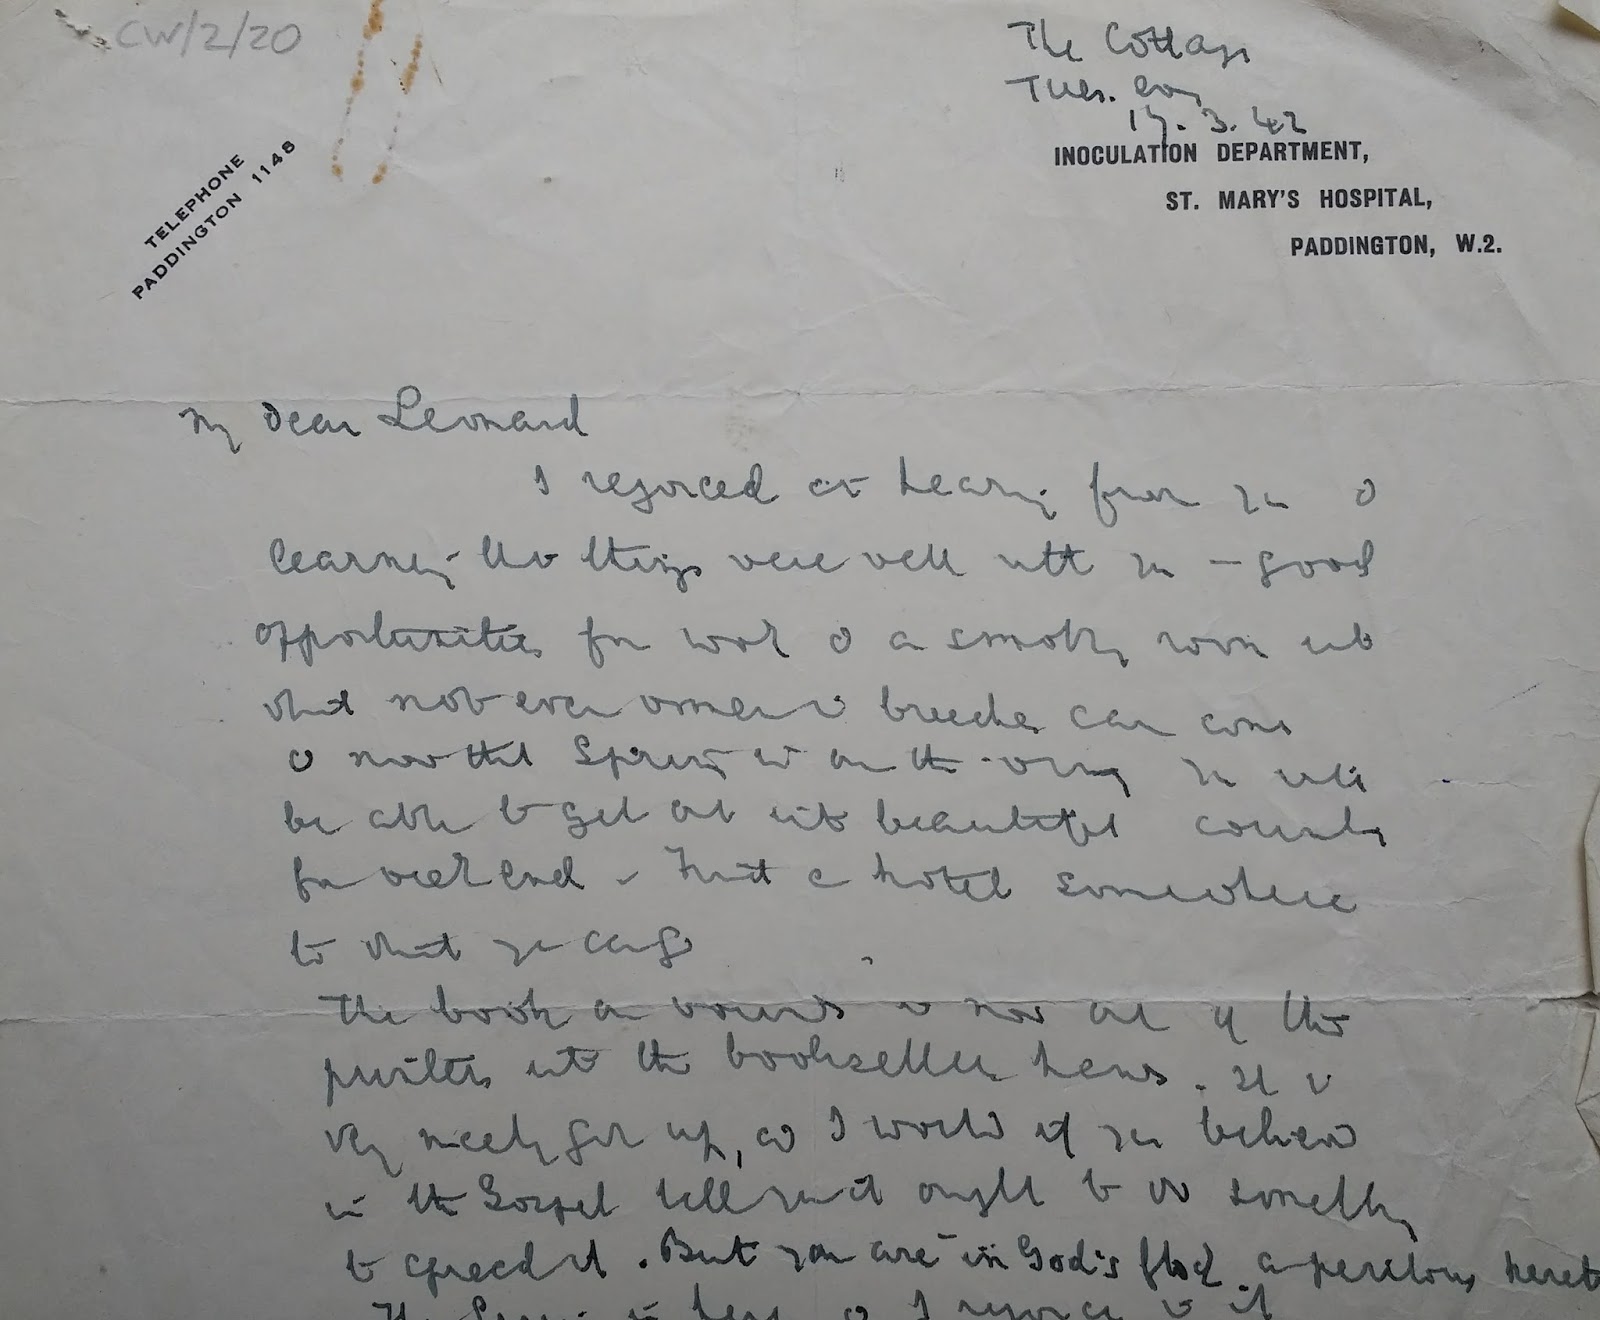 CW/2/20
The Cottage
Tues. evg
17.3.42
TELEPHONE
PADDINGTON 1148
INOCULATION DEPARTMENT,
ST. MARY'S HOSPITAL,
PADDINGTON, W.2.
My Dear Leonard
I rejoiced at hearing from you &
learning that things were well with you — good
opportunities for work & a smoking room into
which not even women in breeches can come
& now that Spring is on the wing you will
be able to get out into beautiful country
for week end - Find a hotel somewhere
to which you can go
The book on wounds is now out of the
printers into the booksellers hands. It is
very nicely got up, & I would if you believed
in the Gospel tell you it ought to do something
to spread it. But you are in God's flock a heretic
I rejoice